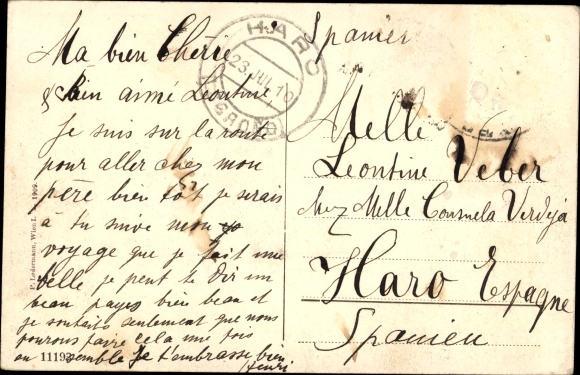 Ma bien Chérie
bien aimé Leontine
Je suis sur la route
pour aller chez mon
père bien tôt je serais
à tu suive mon
voyage que je fait une
belle je peut te dir un
beau payes bien beau et
je souhaits seulement que nous
pourons faire cela une fois
en semble je t'embrasse bien
Henri
11193
P. Ledermann, Wien I. 1909.
HARO
23 JUL 10
LOGROÑO
Spanien
Melle
Leontine Veber
chez Melle Consuela Verdeja
Haro Espagne
Spanien